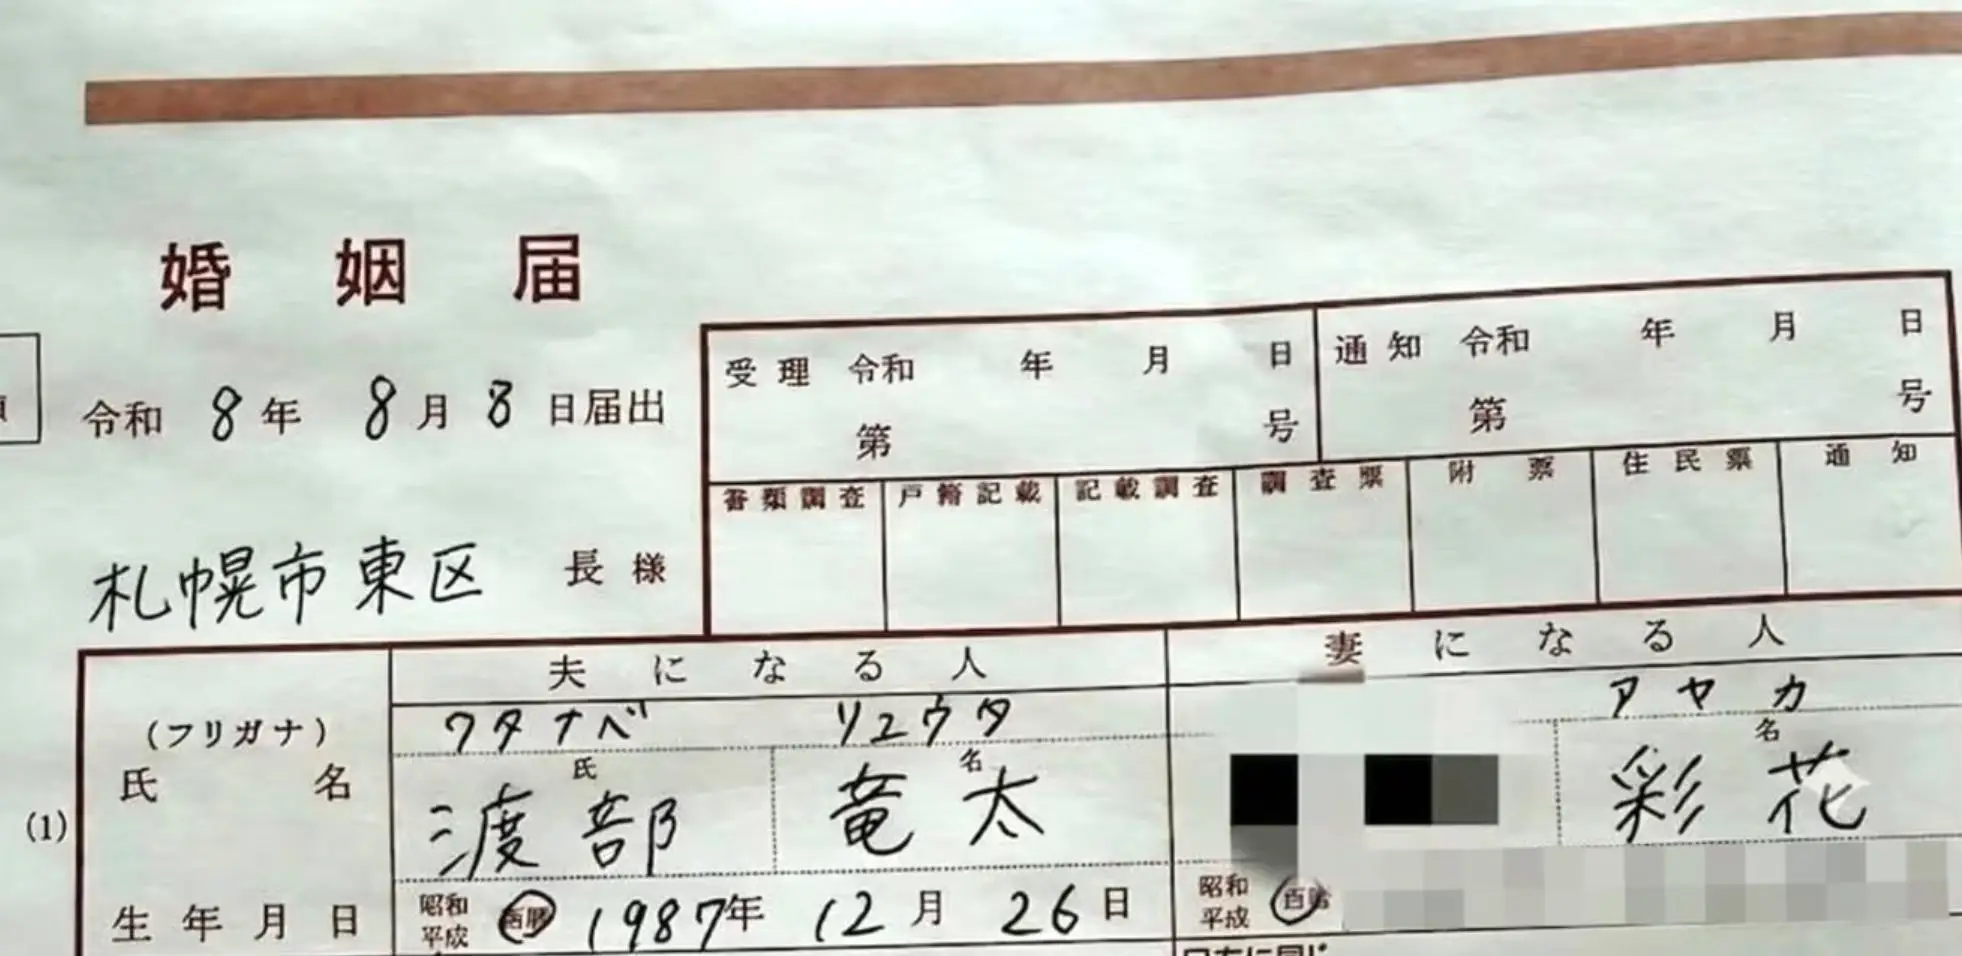 婚姻届
令和 8年 8月 8日届出
札幌市東区 長様
受理 令和 年 月 日
第 号
通知 令和 年 月 日
第 号
書類調査 戸籍記載 記載調査 調査票 附票 住民票 通知
夫になる人 妻になる人
(フリガナ) ワタナベ リュウタ アヤカ
氏 名 氏 名 名
(1)
渡部 竜太 彩花
生年月日 昭和 平成 西暦 1987年 12月 26日 昭和 平成 西暦